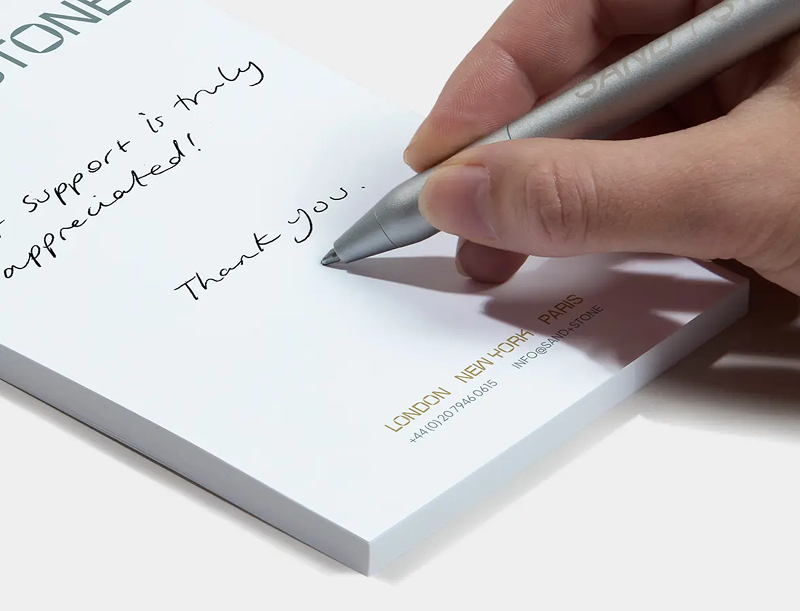 STONE
support is truly
appreciated!
Thank you.
LONDON NEW YORK PARIS
+44(0) 20 7946 0615 INFO@SAND+STONE
SAND+STO